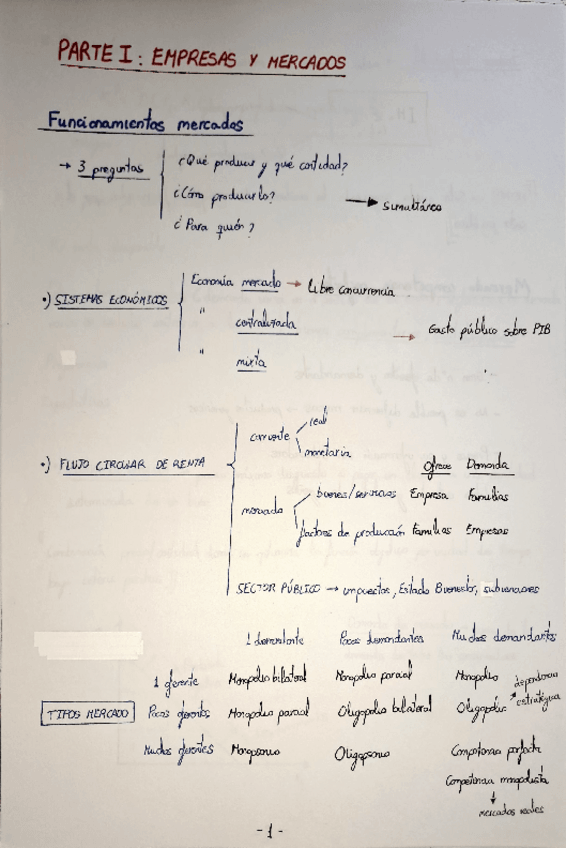 PARTE I: EMPRESAS Y MERCADOS
Funcionamientos mercados
→ 3 preguntas
¿Qué producir y qué cantidad?
¿Cómo producirlo?
→ simultáneo
¿Para quién?
•) SISTEMAS ECONÓMICOS
Economía mercado → Libre concurrencia
" centralizada
→ Gasto público sobre PIB
" mixta
•) FLUJO CIRCULAR DE RENTA
corriente
real
monetaria
Ofrece Demanda
mercado
bienes/servicios Empresa Familias
factores de producción Familias Empresas
SECTOR PÚBLICO → impuestos, Estado Bienestar, subvenciones
1 demandante Pocos demandantes Muchos demandantes
1 oferente Monopolio bilateral Monopolio parcial Monopolio
dependencia estratégica
TIPOS MERCADO
Pocos oferentes Monopsonio parcial Oligopolio bilateral Oligopolio
Muchos oferentes Monopsonio Oligopsonio Competencia perfecta
Competencia monopolista
↓
mercados reales
-1-